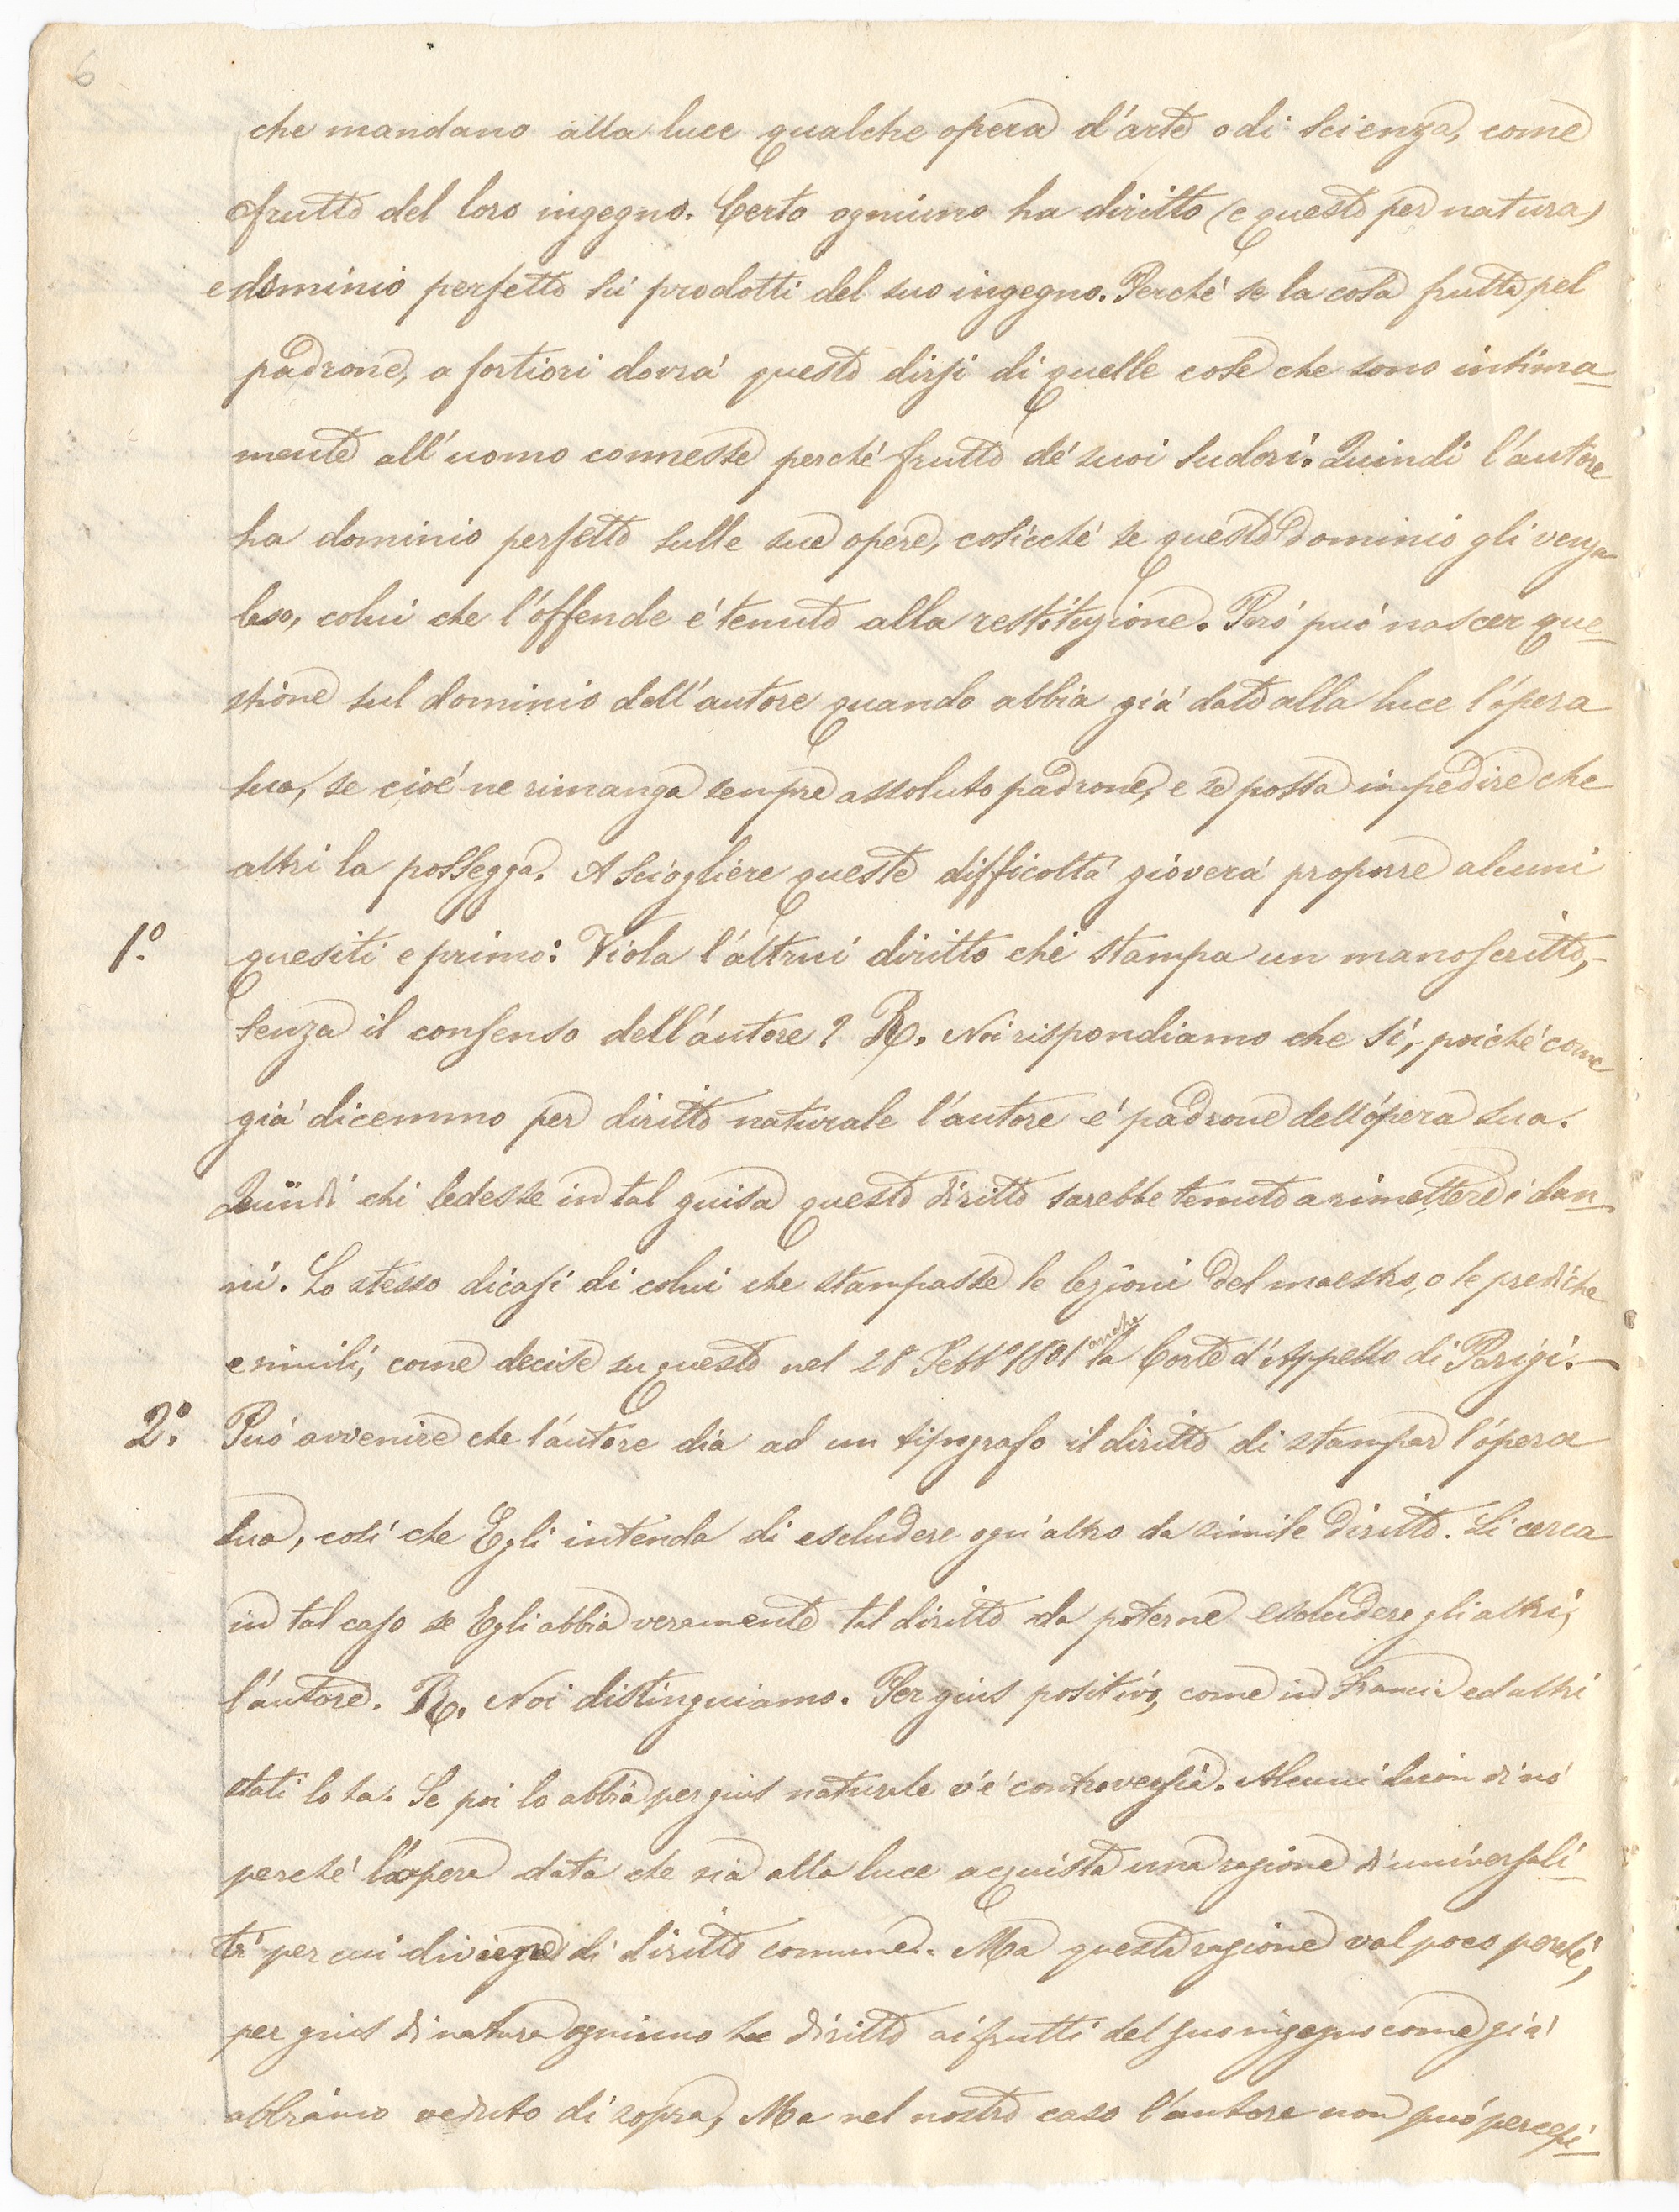 6
che mandano alla luce qualche opera d'arte o di scienza, come
frutto del loro ingegno. Certo ognuno ha diritto (e questo per natura)
e dominio perfetto su' prodotti del suo ingegno. Perché se la cosa frutta pel
padrone, a fortiori dovrá questo dirsi di quelle cose che sono intima-
mente all'uomo connesse perché frutto de' suoi sudori. Quindi l'autore
ha dominio perfetto sulle sue opere, cosicché se questo dominio gli venga
leso, colui che l'offende é tenuto alla restituzione. Peró puó nascer que-
stione sul dominio dell'autore quando abbia giá dato alla luce l'opera
sua, se cioé ne rimanga sempre assoluto padrone, e se possa impedire che
altri la possegga. A sciogliere queste difficoltá gioverá proporre alcuni
1.º quesiti e primo: Viola l'altrui diritto chi stampa un manoscritto,-
senza il consenso dell'autore? R. Noi rispondiamo che sí, poiché come
giá dicemmo per diritto naturale l'autore é padrone dell'opera sua.
Quindi chi ledesse in tal guisa questo diritto sarebbe tenuto a rimettere i dan-
ni. Lo stesso dicasi di colui che stampasse le lezioni del maestro, o le prediche
e simili, come decise su questo nel 28 Febb.º 1801 anche la Corte d'Appello di Parigi.—
2.º Puó avvenire che l'autore dia ad un tipografo il diritto di stampar l'opera
sua, cosí che Egli intenda di escludere ogn'altro da simile diritto. Si cerca
in tal caso se Egli abbia veramente tal diritto da poterne escludere gli altri,
l'autore. R. Noi distinguiamo. Per gius positivo, come in Francia ed altri
stati lo ha. Se poi lo abbia per gius naturale v'é controversia. Alcuni dicon di nó
perché l'opera data che sia alla luce acquista una ragione d'universali-
tá per cui diviene di diritto comune. Ma questa ragione val poco perché,
per gius di natura ognuno ha diritto ai frutti del suo ingegno come giá
abbiamo veduto di sopra, Ma nel nostro caso l'autore non puó percepi-